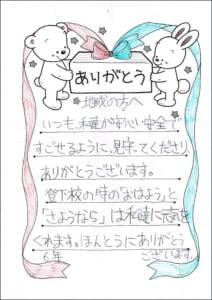 ありがとう
地域の方へ
いつも、私達が安心、安全で
すごせるように、見守ってくださり、
ありがとうございます。
登下校の時の「おはよう」と
「さようなら」は私達に元気を
くれます。ほんとうにありがとう
ございます。
6年